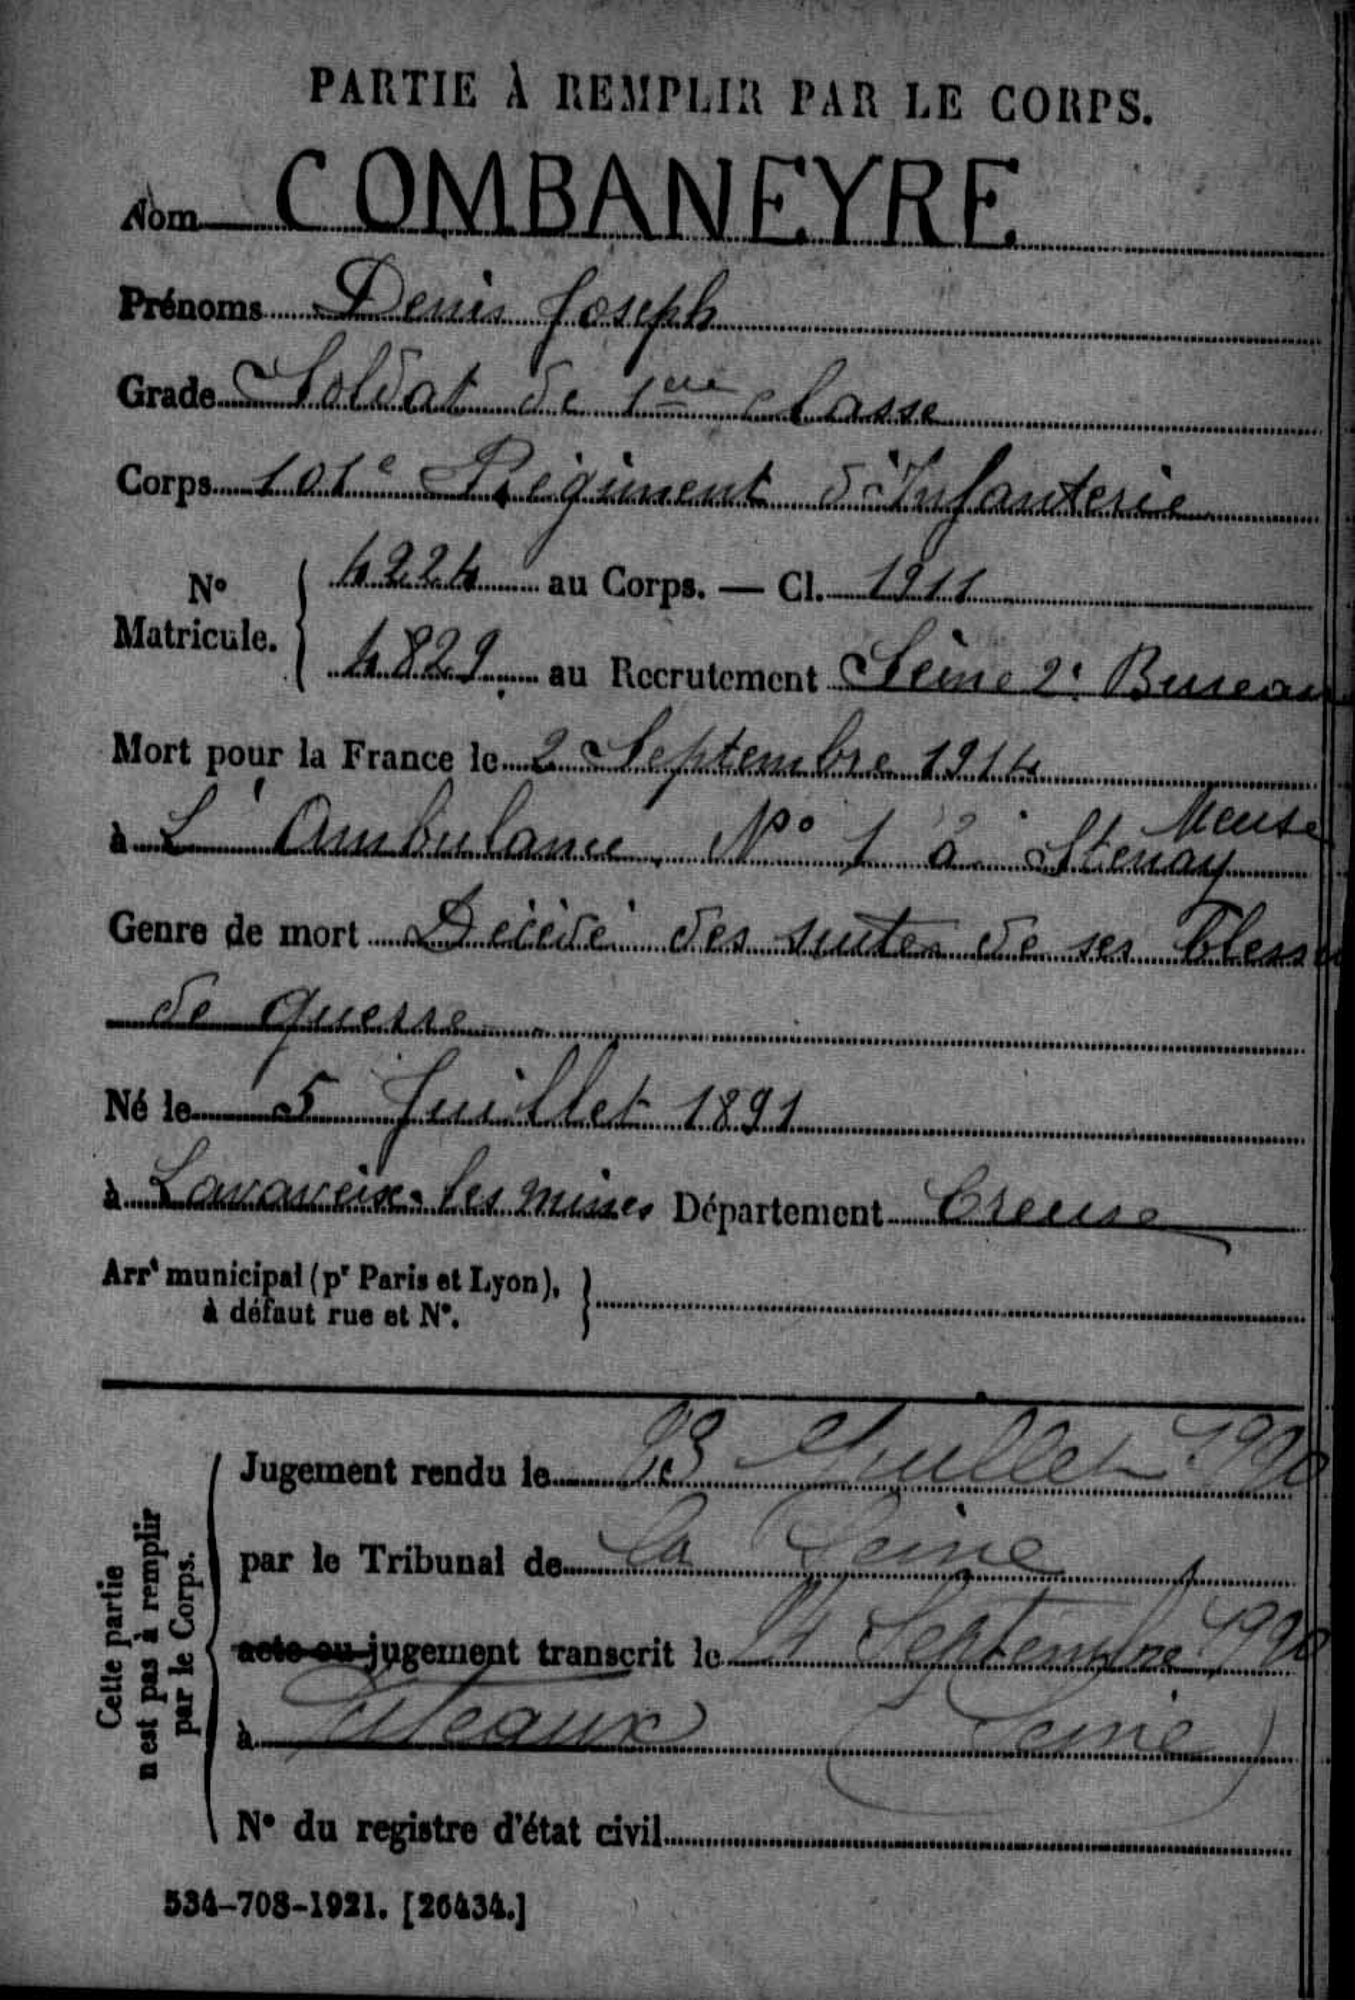 PARTIE À REMPLIR PAR LE CORPS.
Nom COMBANEYRE
Prénoms Denis Joseph
Grade Soldat de 1ere classe
Corps 101e Régiment d'Infanterie
No Matricule. { 4224 au Corps. — Cl. 1911
4829 au Recrutement Seine 2e Bureau
Mort pour la France le 2 Septembre 1914
à L'Ambulance No 1 à Stenay Meuse
Genre de mort Décédé des suites de ses bless
de guerre
Né le 5 Juillet 1891
à Lavaveix-les mines Département Creuse
Arrt municipal (pr Paris et Lyon), à défaut rue et No. }
Cette partie n'est pas à remplir par le Corps.
Jugement rendu le 23 Juillet 1920
par le Tribunal de la Seine
acte ou jugement transcrit le Septembre 1920
à Puteaux (Seine)
No du registre d'état civil
534-708-1921. [26434.]